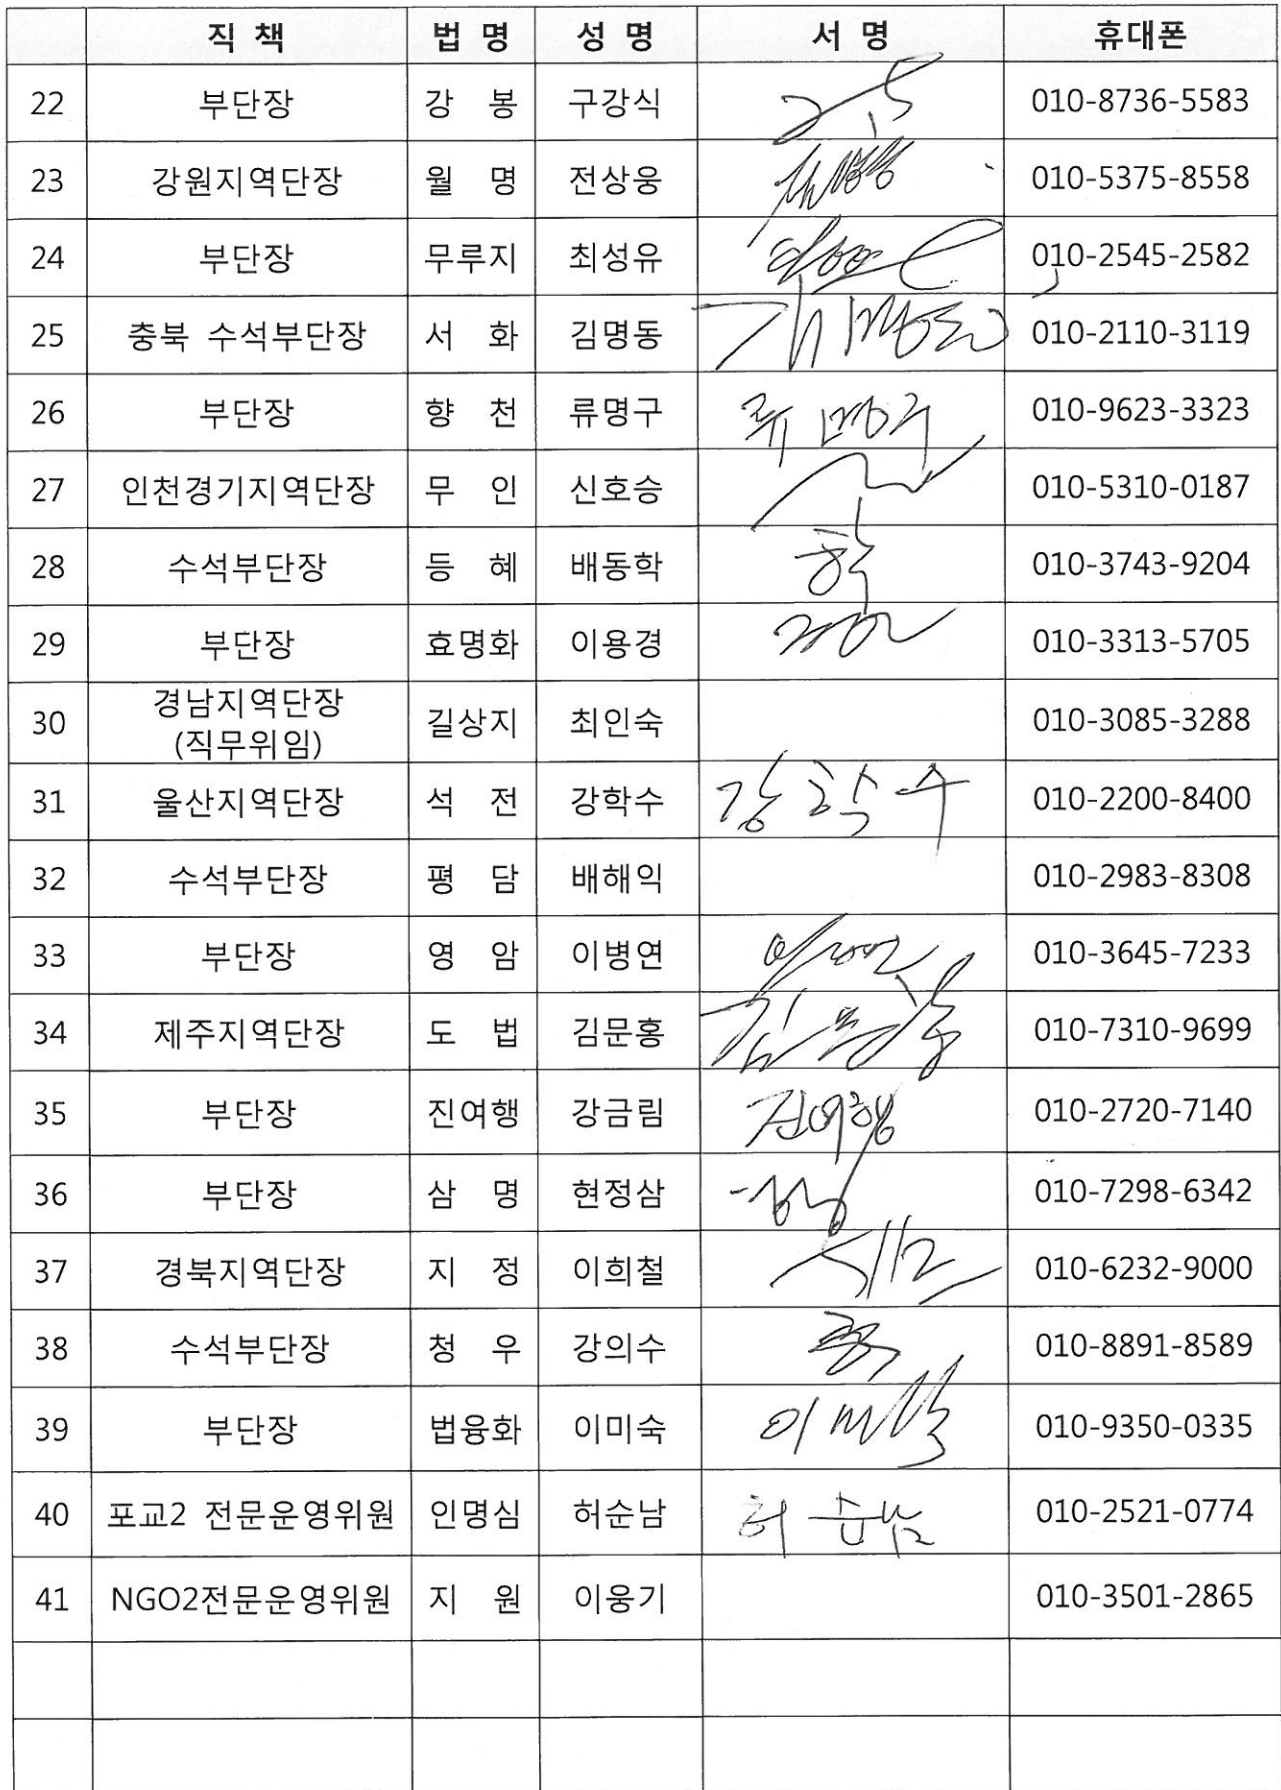 직 책 법 명 성 명 서 명 휴대폰
22 부단장 강 봉 구강식 010-8736-5583
23 강원지역단장 월 명 전상웅 010-5375-8558
24 부단장 무루지 최성유 010-2545-2582
25 충북 수석부단장 서 화 김명동 김명동 010-2110-3119
26 부단장 향 천 류명구 류명구 010-9623-3323
27 인천경기지역단장 무 인 신호승 010-5310-0187
28 수석부단장 등 혜 배동학 학 010-3743-9204
29 부단장 효명화 이용경 010-3313-5705
30 경남지역단장 길상지 최인숙 010-3085-3288
(직무위임)
31 울산지역단장 석 전 강학수 강학수 010-2200-8400
32 수석부단장 평 담 배해익 010-2983-8308
33 부단장 영 암 이병연 010-3645-7233
34 제주지역단장 도 법 김문홍 김문홍 010-7310-9699
35 부단장 진여행 강금림 진여행 010-2720-7140
36 부단장 삼 명 현정삼 010-7298-6342
37 경북지역단장 지 정 이희철 010-6232-9000
38 수석부단장 청 우 강의수 010-8891-8589
39 부단장 법융화 이미숙 이미숙 010-9350-0335
40 포교2 전문운영위원 인명심 허순남 허순남 010-2521-0774
41 NGO2전문운영위원 지 원 이웅기 010-3501-2865